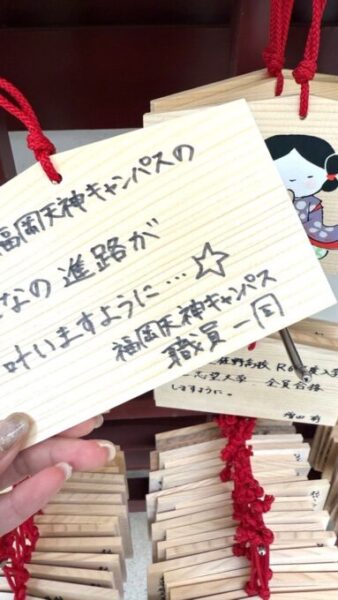 福岡天神キャンパスの
なの進路が
叶いますように…☆
福岡天神キャンパス
職員一同
志望大学 全員合格
しますように。